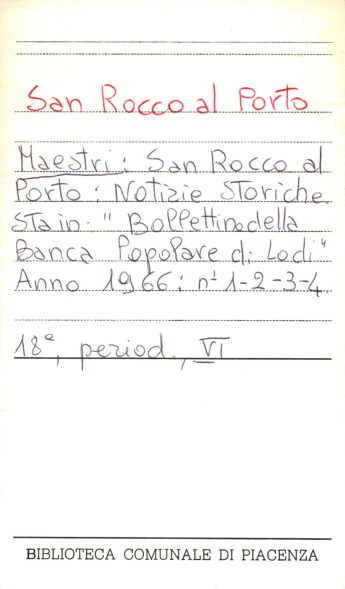 San Rocco al Porto
Maestri: San Rocco al
Porto: Notizie storiche
Sta in. "Bollettino della
Banca Popolare di Lodi"
Anno 1966: ni 1-2-3-4
18e, period., VI
BIBLIOTECA COMUNALE DI PIACENZA